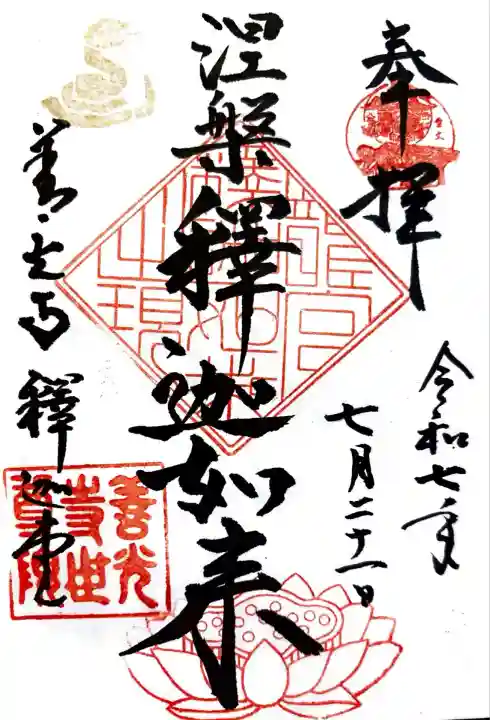 奉拝
令和七年
七月二十一日
涅槃釋迦如来
善光寺 釋迦堂
善光